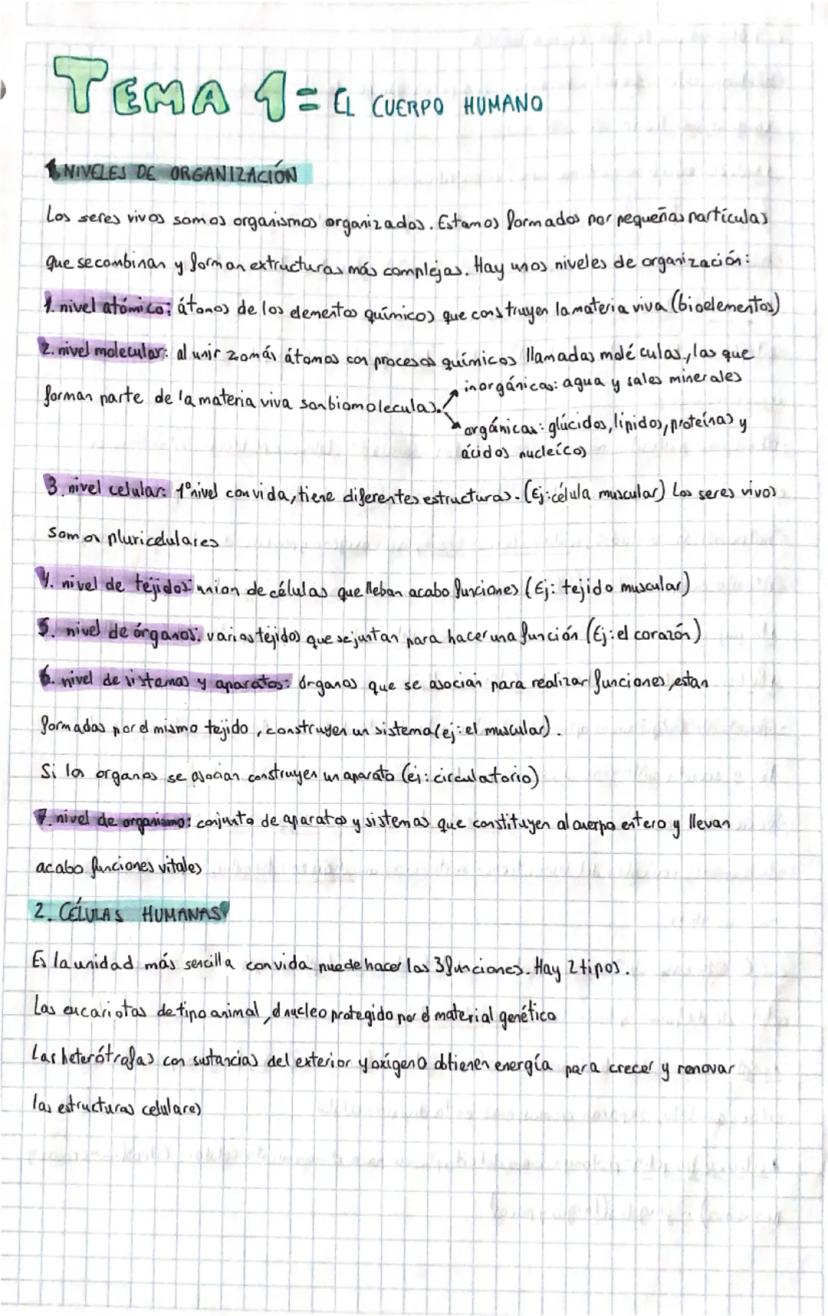 TEMA 1 = EL CUERPO HUMANO
1. NIVELES DE ORGANIZACIÓN
Los seres vivos somos organismos organizados. Estamos formados por pequeñas partículas
que se combinan y forman estructuras más complejas. Hay unos niveles de organización:
1. nivel atómico: átomos de los elementos químicos que construyen la materia viva (bioelementos)
2. nivel molecular: al unir 2 o más átomos con procesos químicos llamadas molé culas, las que
forman parte de la materia viva son biomoleculas.
inorgánicas: agua y sales minerales
orgánicas: glúcidos, lípidos, proteínas y
ácidos nucleíco)
3. nivel celular: 1º nivel con vida, tiene diferentes estructuras. (Ej: célula muscular) Los seres vivos
somos pluricelulares
4. nivel de tejidos: union de células que lleban acabo funciones (Ej: tejido muscular)
5. nivel de órganos: varios tejidos que se juntan para hacer una función (Ej: el corazón)
6. nivel de sistemas y aparatos: órganos que se asocian para realizar funciones, estan
formadas por el mismo tejido, construyen un sistema (ej: el muscular).
Si los organos se asocian construyen un aparato (ej: circulatorio)
7. nivel de organismo: conjunto de aparatos y sistemas que constituyen al cuerpo entero y llevan
acabo funciones vitales
2. CÉLULAS HUMANAS
Es la unidad más sencilla con vida puede hacer las 3 funciones. Hay 2 tipos.
Las eucariotas de tipo animal, el nucleo protegido por el material genético
Las heterótrafas con sustancias del exterior y oxígeno obtienen energía para crecer y renovar
las estructuras celulares